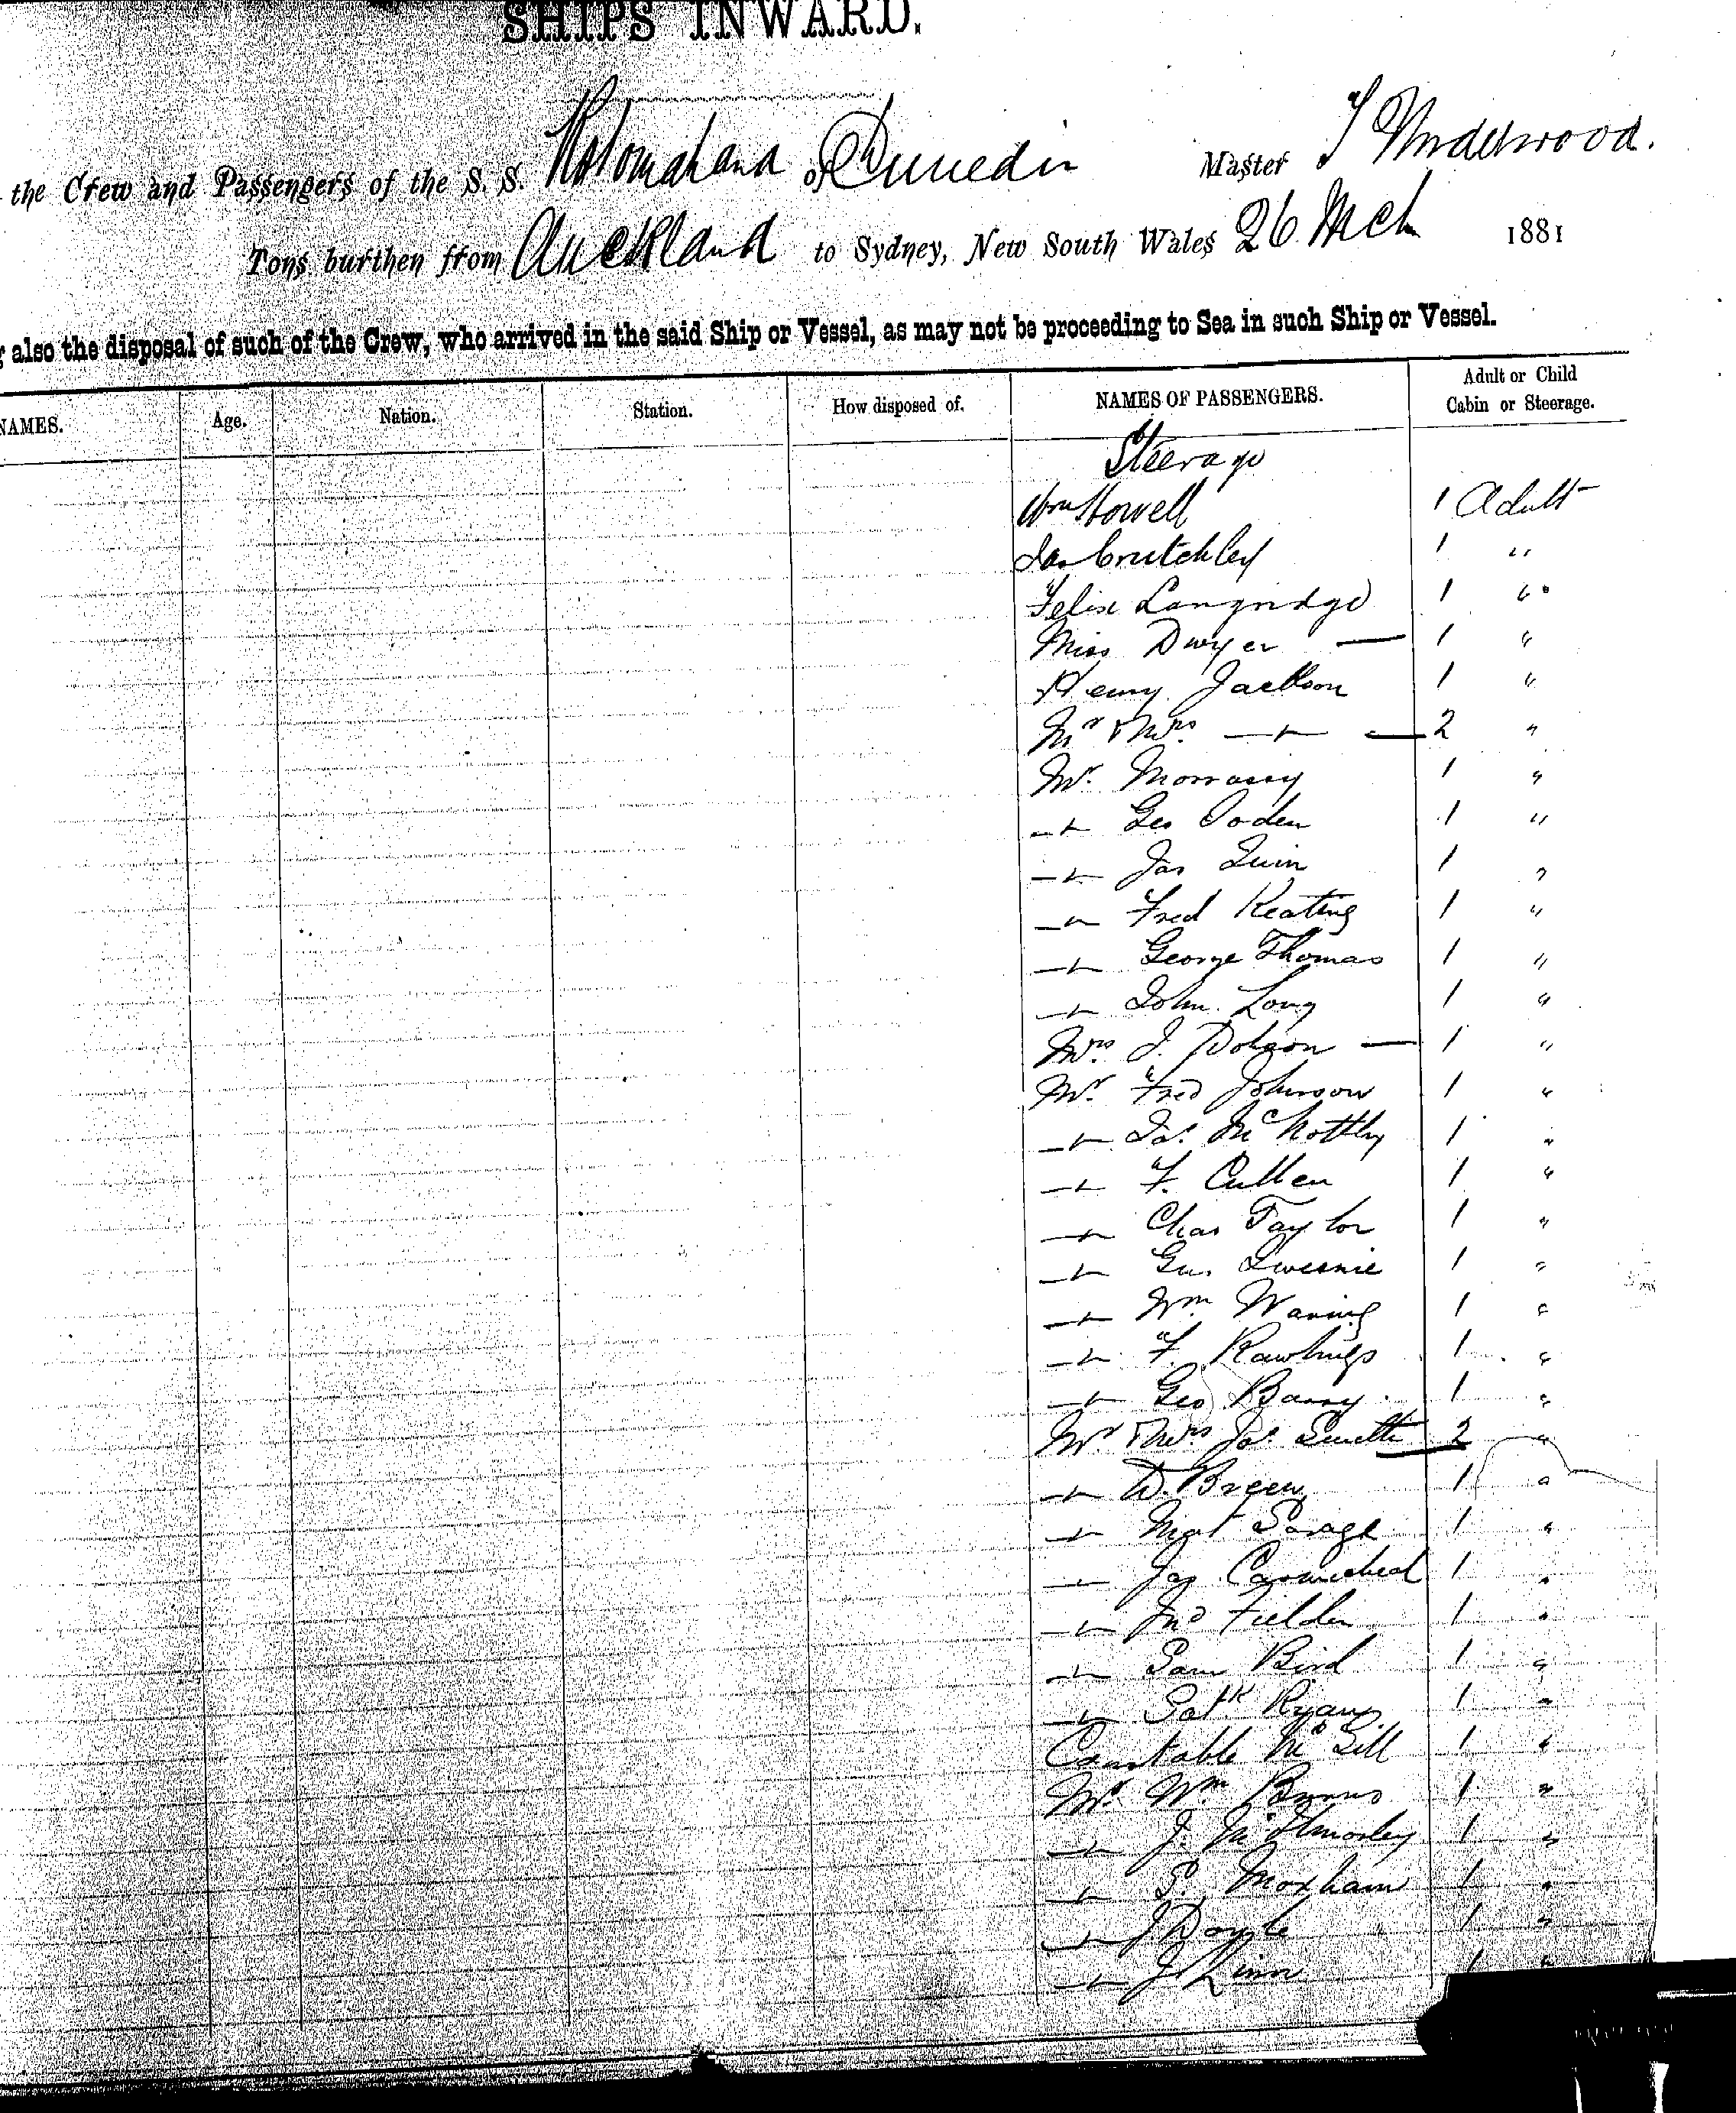 SHIPS INWARD.
the Crew and Passengers of the S. S. Rotomahana of Dunedin Master T Underwood.
Tons burthen from Auckland to Sydney, New South Wales 26 Mch 1881
also the disposal of such of the Crew, who arrived in the said Ship or Vessel, as may not be proceeding to Sea in such Ship or Vessel.
NAMES. Age. Nation. Station. How disposed of. NAMES OF PASSENGERS. Adult or Child Cabin or Steerage.
Steerage
Wm Howell 1 Adult
Jas Crutchley 1 "
Felix Langridge 1 "
Miss Dwyer — 1 "
Henry Jackson 1 "
Mr & Mrs. —"— — 2 "
Mr. Morrassy 1 "
—"— Geo 1 "
—"— Jas Quin 1 "
—"— Fred Keating 1 "
—"— George Thomas 1 "
—"— John Long 1 "
Mrs. J. Dobson — 1 "
Mr. Fred Johnson 1 "
—"— Jas. Mc 1 "
—"— F. Cullen 1 "
—"— Chas Taylor 1 "
—"— Gus. 1 "
—"— Wm Waring 1 "
—"— F. Rawlings 1 "
—"— Geo Barry 1 "
Mr & Mrs Jas Smith 2 "
—"— D. Breen 1 "
—"— Mat Savage 1 "
—"— Jas Carmicheal 1 "
—"— Jno Fielder 1 "
—"— Sam Bird 1 "
—"— Patk Ryan 1 "
Constable McGill 1 "
Mr. Wm Burns 1 "
—"— J. 1 "
—"— S. Moxham 1 "
—"— J Doyle 1 "
—"— J Linn 1 "